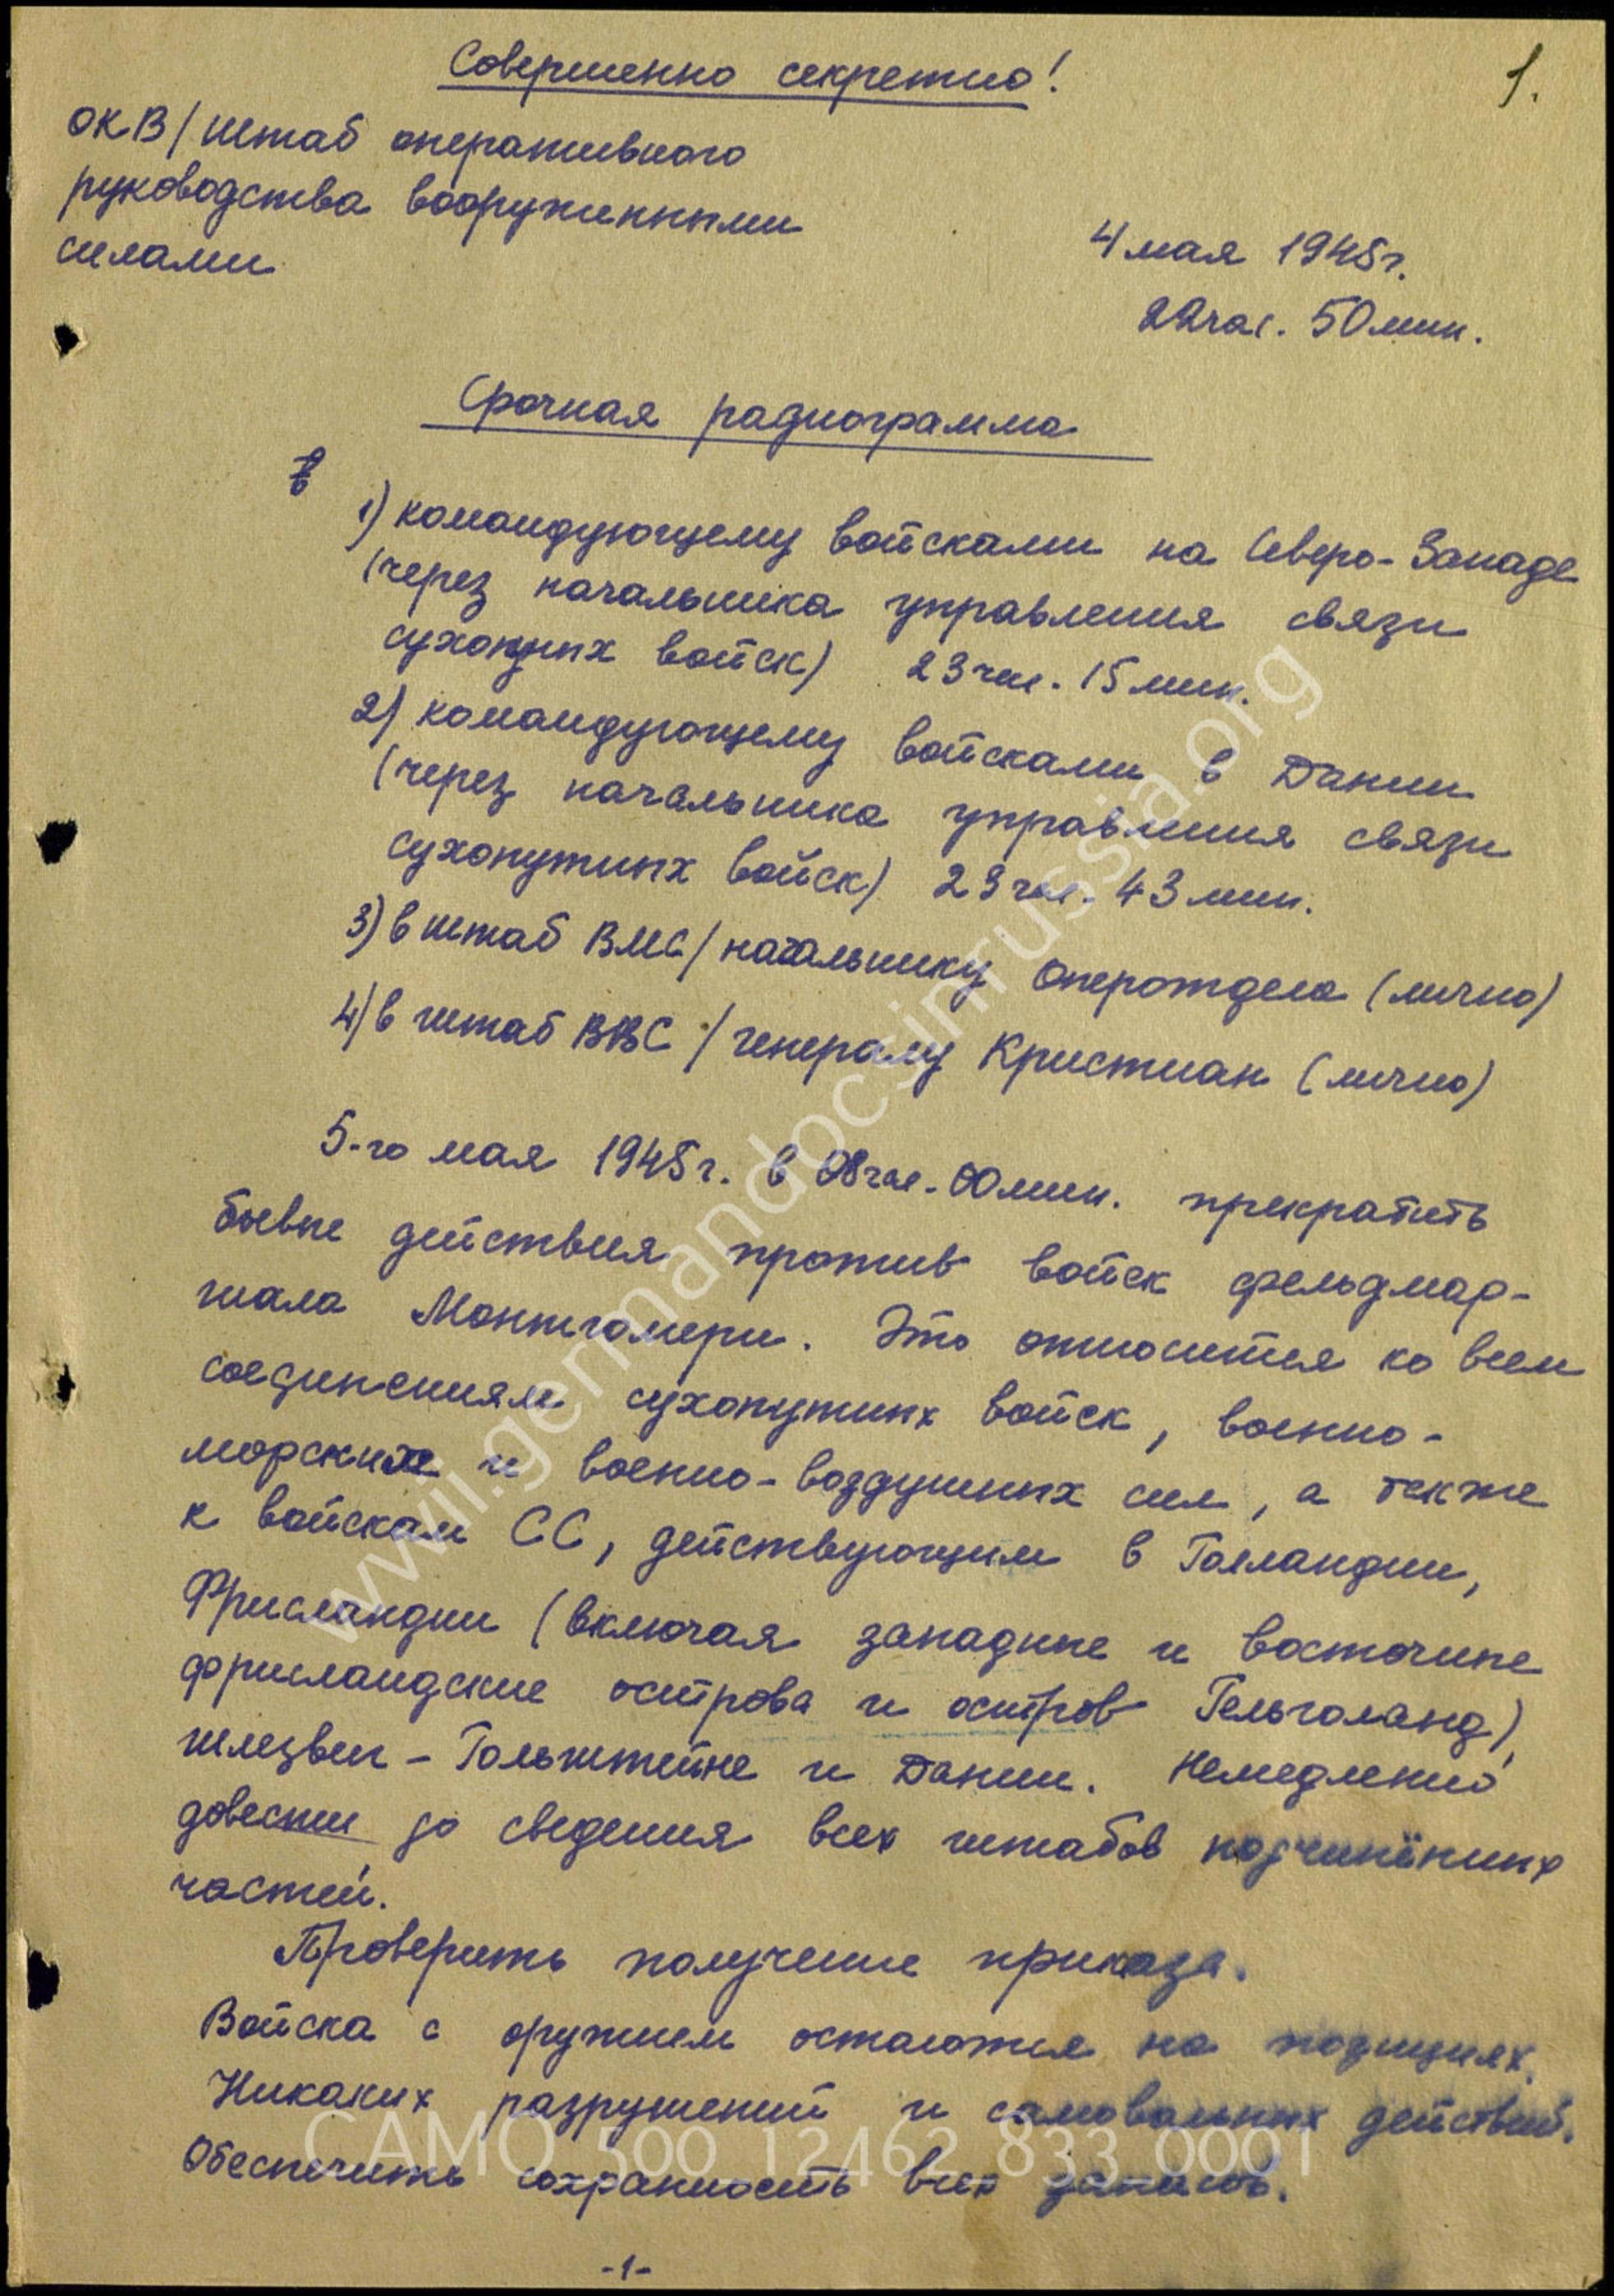 Совершенно секретно!
1.
ОКВ/штаб оперативного
руководства вооруженными
силами
4 мая 1945г.
22час. 50мин.
Срочная радиограмма
в
1) командующему войсками на Северо-Западе
(через начальника управления связи
сухопутных войск) 23час. 15мин.
2) командующему войсками в Дании
(через начальника управления связи
сухопутных войск) 23час. 43мин.
3) в штаб ВМС/начальнику оперотдела (лично)
4) в штаб ВВС/генералу Кристиан (лично)
5-го мая 1945г. в 08час. 00мин. прекратить
боевые действия против войск фельдмар-
шала Монтгомери. Это относится ко всем
соединениям сухопутных войск, военно-
морских и военно-воздушных сил, а также
к войскам СС, действующим в Голландии,
Фрисландии (включая западные и восточные
фрисландские острова и остров Гельголанд),
Шлезвиг-Гольштейне и Дании. Немедленно
довести до сведения всех штабов подчинённых
частей.
Проверить получение приказа.
Войска с оружием остаются на позициях.
Никаких разрушений и самовольных действий.
Обеспечить сохранность всех запасов.
-1-
wwii.germandocsinrussia.org
CAMO 500 12462 833 0001